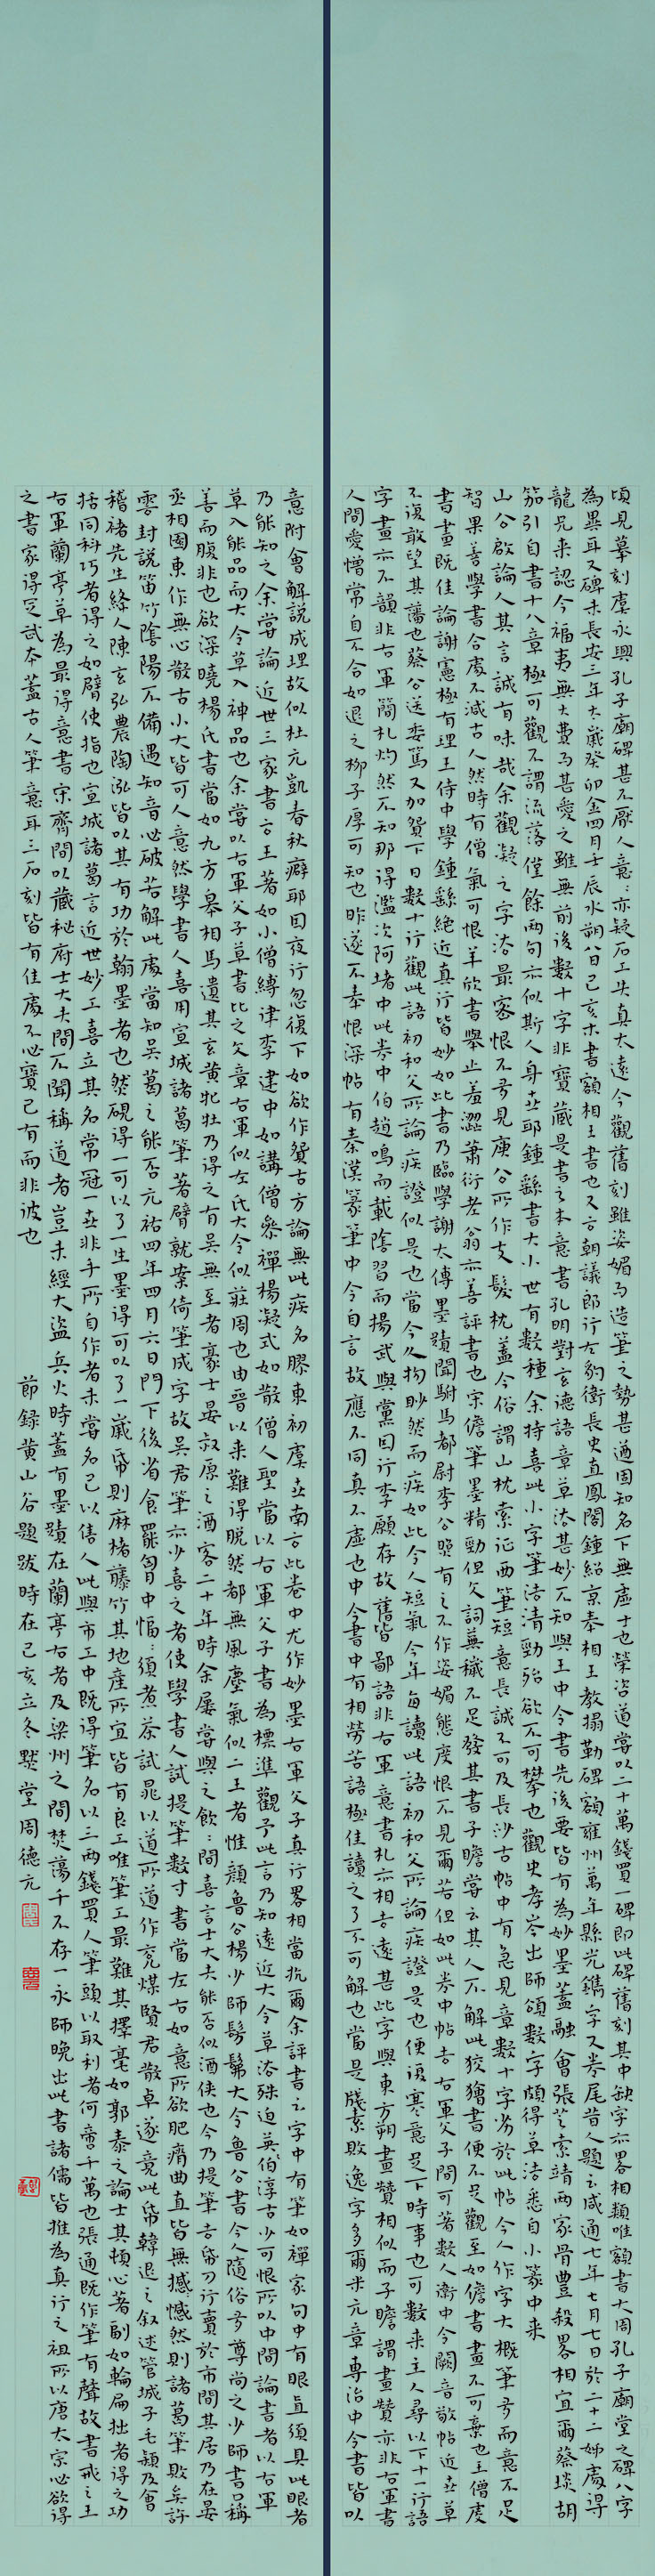 頃見摹刻虞永興孔子廟碑甚不厭人意意亦疑石工失真太遠今觀舊刻雖姿媚而造筆之勢甚遒固知名下無虛士也榮咨道嘗以二十萬錢買一碑即此碑舊刻其中缺字亦畧相類唯額書大周孔子廟堂之碑八字
為異耳又碑末長安三年太歲癸卯金四月壬辰水朔八日己亥木書額相王書也又言朝議郎行左豹衛長史直鳳閣鍾紹京奉相王教搨勒碑額雍州萬年縣光鐫字又卷尾昔人題云咸通七年七月七日於二十二姊處得
龍兄來認今福夷無大費而甚愛之雖無前後數十字非寶藏是書之本意書孔明對玄德語章草法甚妙不知與王中令書先後要皆有為妙墨蓋融會張芝索靖兩家骨豐殺畧相宜爾蔡琰胡
笳引自書十八章極可觀不謂流落僅餘兩句亦似斯人身世耶鍾繇書大小世有數種余特喜此小字筆法清勁殆欲不可攀也觀史孝岑出師頌數字頗得草法悉自小篆中來
山公啟論人其言誠有味哉余觀凝之字法最密恨不多見庾公所作支髮枕蓋今俗謂山枕索征西筆短意長誠不可及長沙古帖中有急見章數十字劣於此帖今人作字大概筆多而意不足
智果善學書合處不減古人然時有僧氣可恨羊欣書舉止羞澀蕭衍老翁亦善評書也宋儋筆墨精勁但文詞蕪穢不足發其書子瞻嘗云其人不解此狡獪書便不足觀至如儋書畫不可棄也王僧虔
書書既佳論謝憲極有理王侍中學鍾繇絕近真行皆妙如此書乃臨學謝太傅墨蹟聞駙馬都尉李公炤有之不作姿媚態度恨不見爾若但如此卷中帖去右軍父子間可著數人衛中令闕音敬帖近世草
不復敢望其藩也蔡公送委篤又加贊下日數十行觀此語初和父所論疾證似是也當今人拘眇然而疾如此今人短氣今年每讀此語初和父所論疾證是也便復寒意是下時事也可數來主人尋以下十一行語
字畫亦不韻非右軍簡札灼然不知那得濫次阿堵中此卷中伯趙鳴而載陰習而揚武與黨因行李願存故舊皆鄙語非右軍意書札亦相去遠甚此字與東方朔畫贊相似而子瞻謂畫贊亦非右軍書
人間愛憎常自不合如退之柳子厚可知也昨遂不奉恨深帖有秦漢篆筆中令自言故應不同真不虛也中令書中有相勞苦語極佳讀之了不可解也當是牋素敗逸字多爾米元章專治中令書皆以
意附會解說成理故似杜元凱春秋癖耶因夜行忽復下如欲作贊古方論無此疾名膠東初虞世南言此卷中尤作妙墨右軍父子真行畧相當抗爾余評書云字中有筆如禪家句中有眼直須具此眼者
乃能知之余嘗論近世三家書言王著如小僧縛律李建中如講僧參禪楊凝式如散僧入聖當以右軍父子書為標準觀予此言乃知遠近大令草法殊迫英伯淳古少可恨所以中間論書者以右軍
草入能品而大令草入神品也余嘗以右軍父子草書比之文章右軍似左氏大令似莊周也由晉以來難得脫然都無風塵氣似二王者惟顏魯公楊少師髣髴大令魯公書今人隨俗多尊尚之少師書口稱
善而腹非也欲深曉楊氏書當如九方皋相馬遺其玄黃牝牡乃得之有吳無至者豪士晏叔原之酒客二十年時余屢嘗與之飲飲間喜言士大夫能否似酒俠也今乃提筆去帛刀行賣於市問其居乃在晏
丞相園東作無心散古小大皆可人意然學書人喜用宣城諸葛筆著臂就案倚筆成字故吳君筆亦少喜之者使學書人試提筆數寸書當左右如意所欲肥瘠曲直皆無憾憾然則諸葛筆敗矣許
雲封說笛竹陰陽不備遇知音必破若解此處當知吳葛之能否元祐四年四月六日門下後省食罷胷中愊愊須煮茶試晁以道所道作兗煤賢君散卓遂竟此帋韓退之叙述管城子毛穎及會
稽褚先生絳人陳玄弘農陶泓皆以其有功於翰墨者也然硯得一可以了一生墨得可以了一歲帋則麻楮藤竹其地產所宜皆有良工唯筆工最難其擇毫如郭泰之論士其頓心著副如輪扁拙者得之功
括同科巧者得之如臂使指也宣城諸葛言近世妙工喜立其名常冠一世非手所自作者未嘗名己以售人此與市工中既得筆名以三兩錢買人筆頭以取利者何啻千萬也張通既作筆有聲故書戒之王
右軍蘭亭草為最得意書宋齊間以藏秘府士大夫間不聞稱道者豈未經大盜兵火時蓋有墨蹟在蘭亭右者及梁州之間焚蕩千不存一永師晚出此書諸儒皆推為真行之祖所以唐太宗必欲得
之書家得定武本蓋古人筆意耳三石刻皆有佳處不必寶己有而非彼也 節錄黃山谷題跋時在己亥立冬默堂周德元